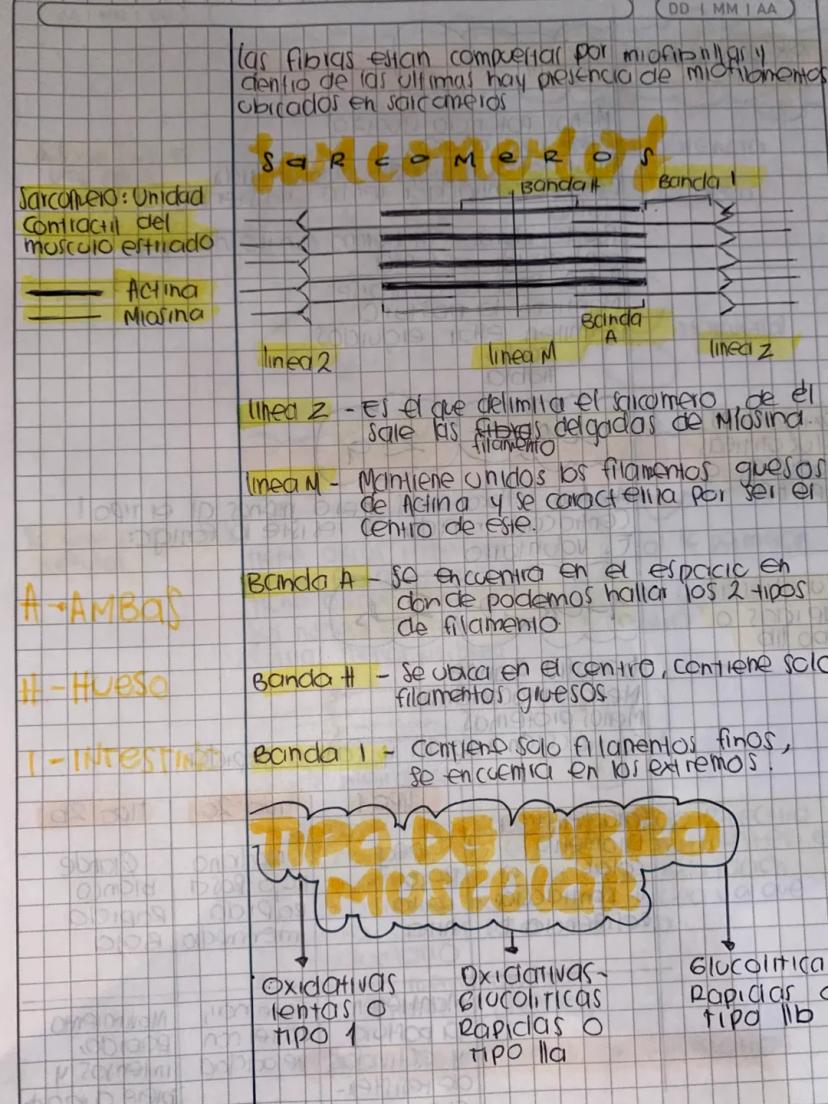 DD MM AA
las fibras estan compuestas por miofibrillas y
dentro de las ultimas hay presencia de miofilamentos
ubicados en sarcomeros
SaRcoMeROS
Banda H
Banda I
Sarcomero: Unidad
Contractil del
musculo estriado
Actina
Miosina
Banda
A
linea Z
linea M
linea Z
linea Z - Es el que delimita el sarcomero, de él
sale las fibras delgadas de Miosina.
filamento
linea M - Mantiene unidos los filamentos gruesos
de Actina y se caracteriza por ser el
centro de este.
Banda A - se encuentra en el espacio en
donde podemos hallar los 2 tipos
de filamento
A → AMBAS
Banda H - se ubica en el centro, contiene solo
filamentos gruesos
H - Hueso
Banda I - contiene solo filamentos finos,
se encuentra en los extremos.
I - INTESTINO
TIPO DE FIBRA
MUSCULAR
Oxidativas
lentas o
tipo 1
Oxidativas-
Glucoliticas
Rapidas o
tipo IIa
Glucolitica
Rapidas o
tipo IIb